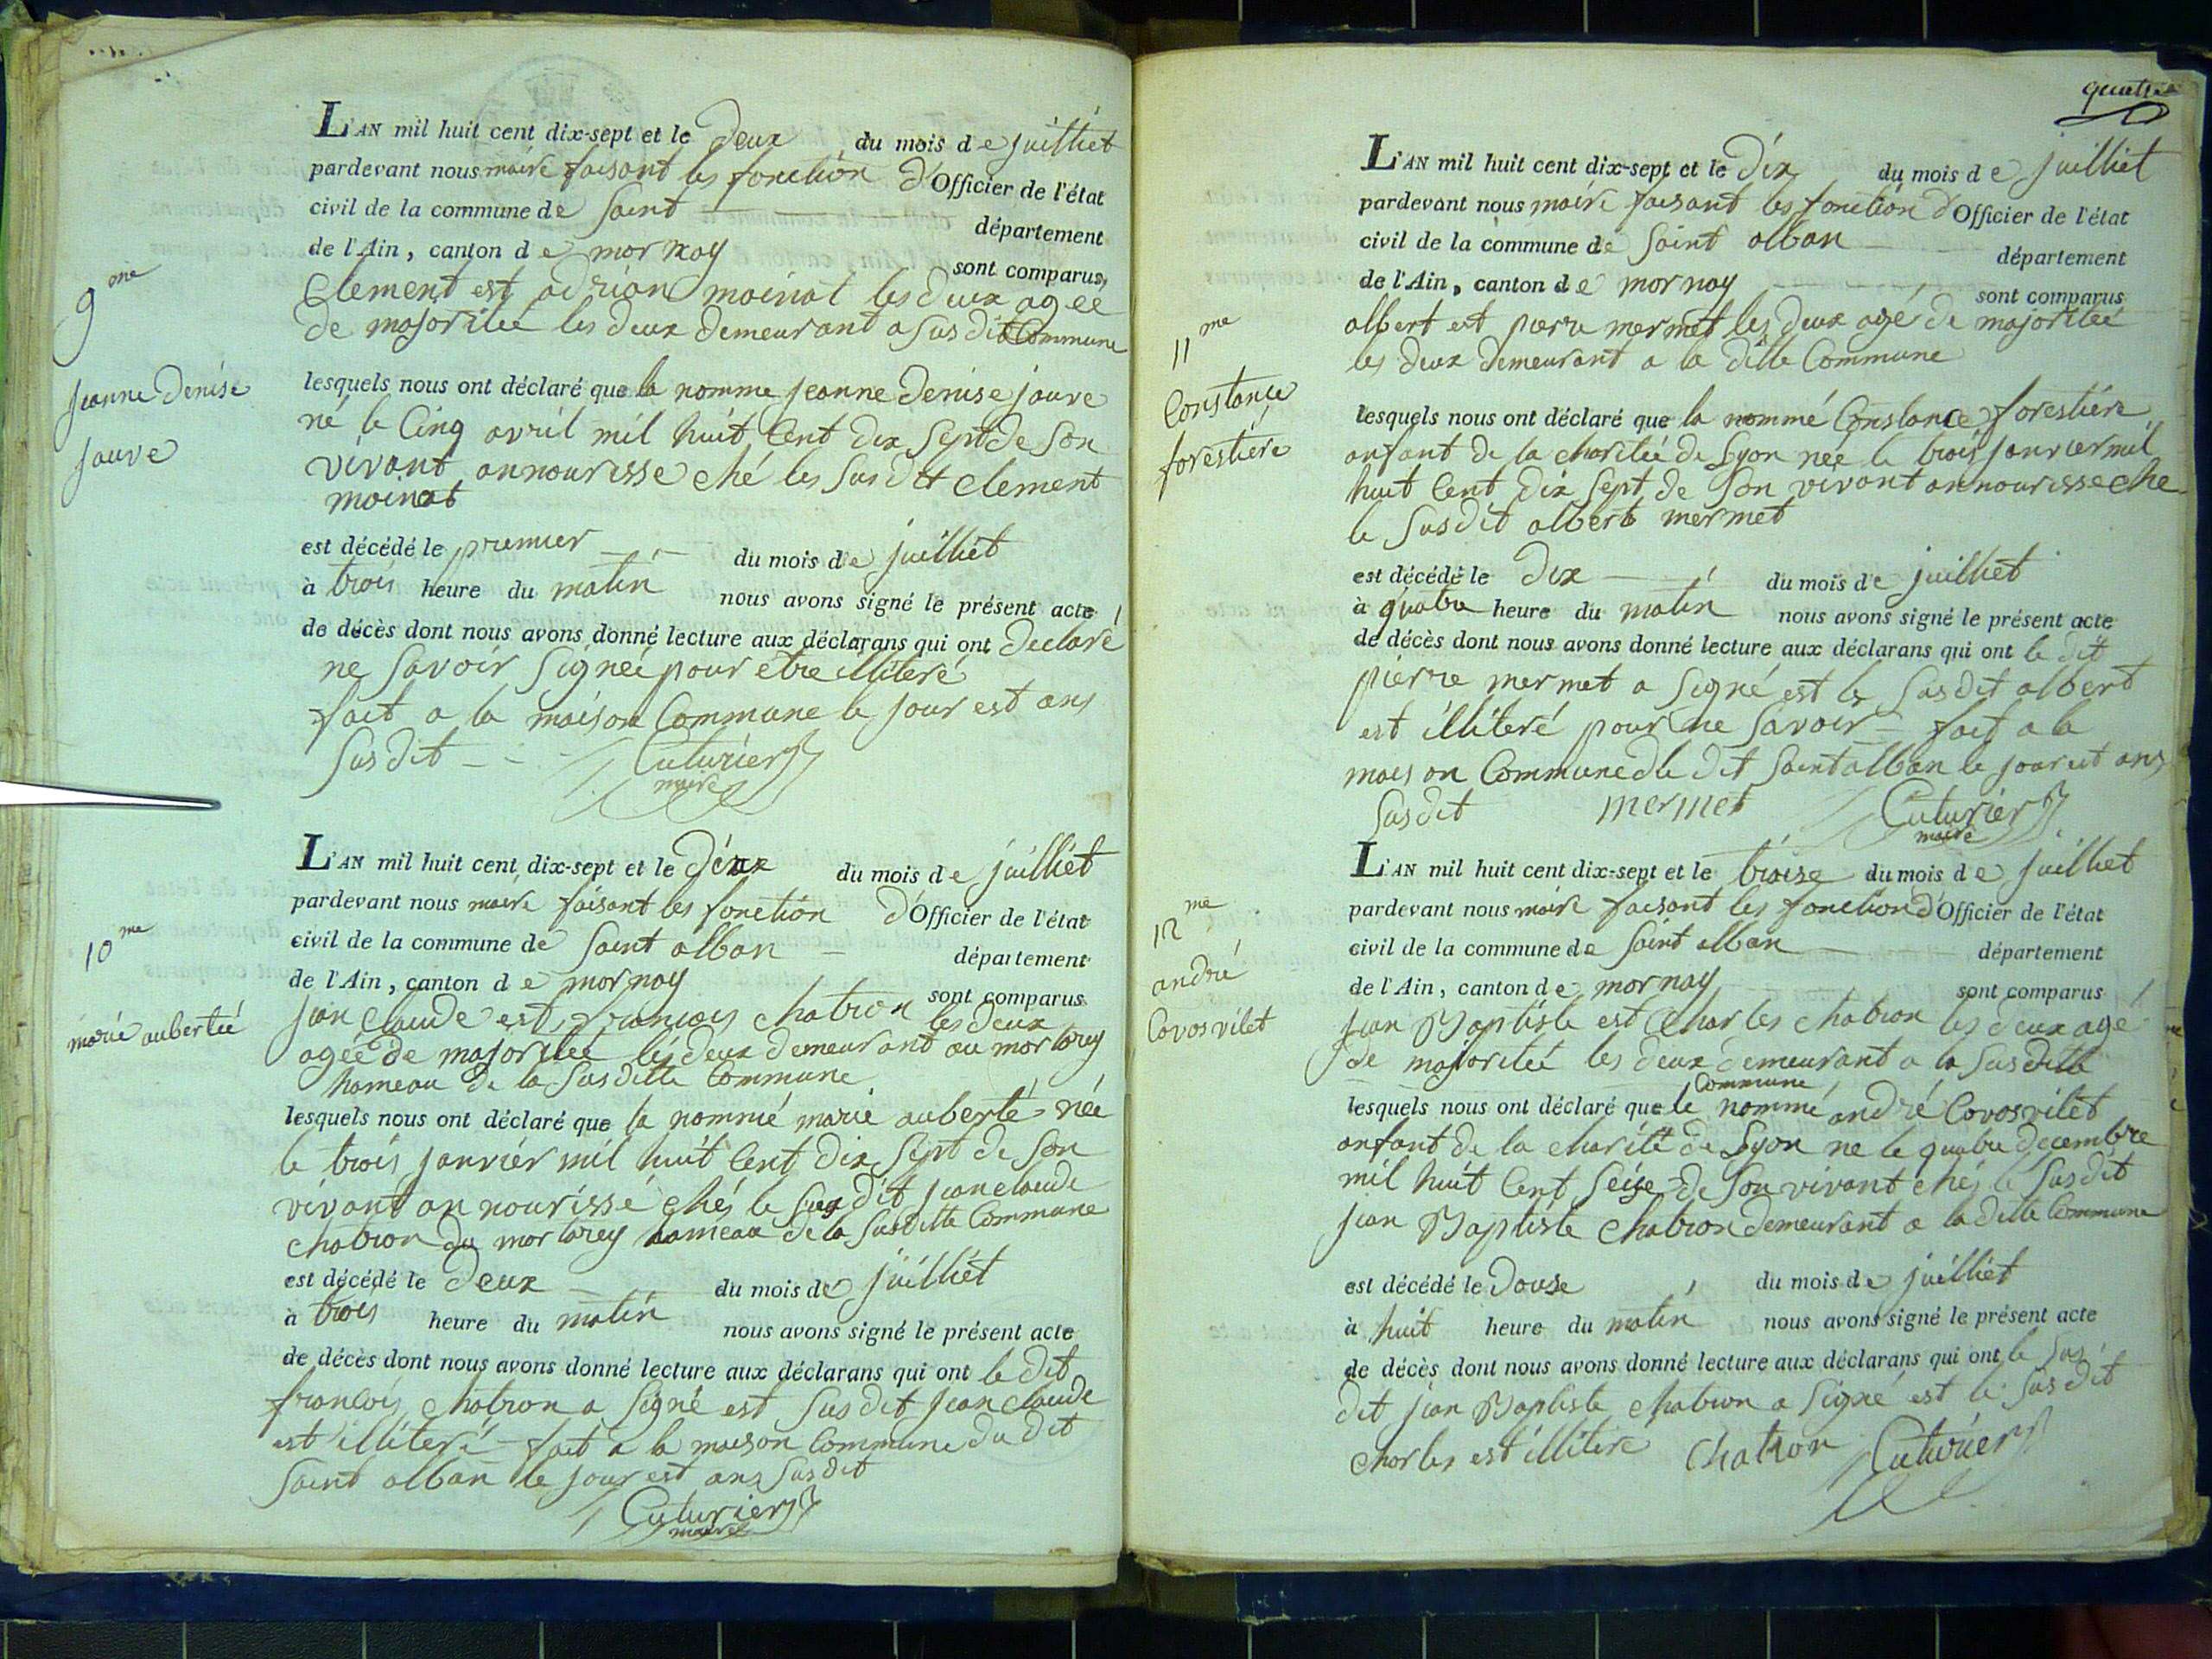 L'AN mil huit cent dix-sept et le deux du mois de juilliet
pardevant nous maire faisant les fonction d'Officier de l'état
civil de la commune de Saint département
de l'Ain, canton de mornay sont comparus,
Clement est adrian moinat les deux agee
de majoritée les deux demeurant a susdit Commune
9me
jeanne denise
jauve
lesquels nous ont déclaré que la nomme jeanne denise jauve
né le Cinq avril mil huit Cent dix Sept de Son
vivant annourisse ché les Susdit Clement
moinat
est décédé le premier du mois de juilliet
à trois heure du matin nous avons signé le présent acte
de décès dont nous avons donné lecture aux déclarans qui ont declaré
ne Savoir Signeé pour etre illiteré
fait a la maison Commune le jour est ans
Susdit Cuturier
maire
L'AN mil huit cent dix-sept et le deux du mois de juilliet
pardevant nous maire faisant les fonction d'Officier de l'état
civil de la commune de Saint alban département
de l'Ain, canton de mornay sont comparus
10me
marie aubertée
jean claude est francois chatron les deux
agée de majoritée les deux demeurant au mortarey
hameau de la Susditte Commune
lesquels nous ont déclaré que la nommé marie auberté née
le trois janvier mil huit Cent dix Sept de Son
vivant annourissé chés le Susdit jean claude
chatron du mortarey hameau de la Susditte Commune
est décédé le deux du mois de juilliet
à trois heure du matin nous avons signé le présent acte
de décès dont nous avons donné lecture aux déclarans qui ont le dit
francois chatron a Signé est Susdit jean claude
est illiteré fait a la maison Commune du dit
Saint alban le jour est ans Susdit
Cuturier
maire
quatre
L'AN mil huit cent dix-sept et le dix du mois de juilliet
pardevant nous maire faisant les fonction d'Officier de l'état
civil de la commune de Saint alban département
de l'Ain, canton de mornay sont comparus
albert est pierre mermet les deux agé de majoritée
les deux demeurant a la ditte Commune
11me
Constance
forestière
lesquels nous ont déclaré que la nommé Constance forestière
anfant de la charitée de Lyon née le trois janvier mil
huit Cent dix Sept de Son vivant annourisse che
le Susdit albert mermet
est décédé le dix du mois de juilliet
à quatre heure du matin nous avons signé le présent acte
de décès dont nous avons donné lecture aux déclarans qui ont le dit
pierre mermet a Signé est le Susdit albert
est illiteré pour ne Savoir fait a la
maison Commune du dit Saint alban le jour est ans
Susdit mermet Cuturier
maire
L'AN mil huit cent dix-sept et le treise du mois de juilliet
pardevant nous maire faisant les fonction d'Officier de l'état
civil de la commune de Saint alban département
de l'Ain, canton de mornay sont comparus
12me
andré
Covosvilet
jean Baptiste est Charles chatron les deux agé
de majoritée les deux demeurant a la Susditte
Commune
lesquels nous ont déclaré que le nommé andré Covosvilet
anfant de la charité de Lyon ne le quatre decembre
mil huit Cent Seise de Son vivant chés le Susdit
jean Baptiste Chatron demeurant a la ditte Commune
est décédé le douse du mois de juilliet
à huit heure du matin nous avons signé le présent acte
de décès dont nous avons donné lecture aux déclarans qui ont le Sus
dit jean Baptiste chatron a Signé est le Susdit
Charles est illitere Chatron Cuturier